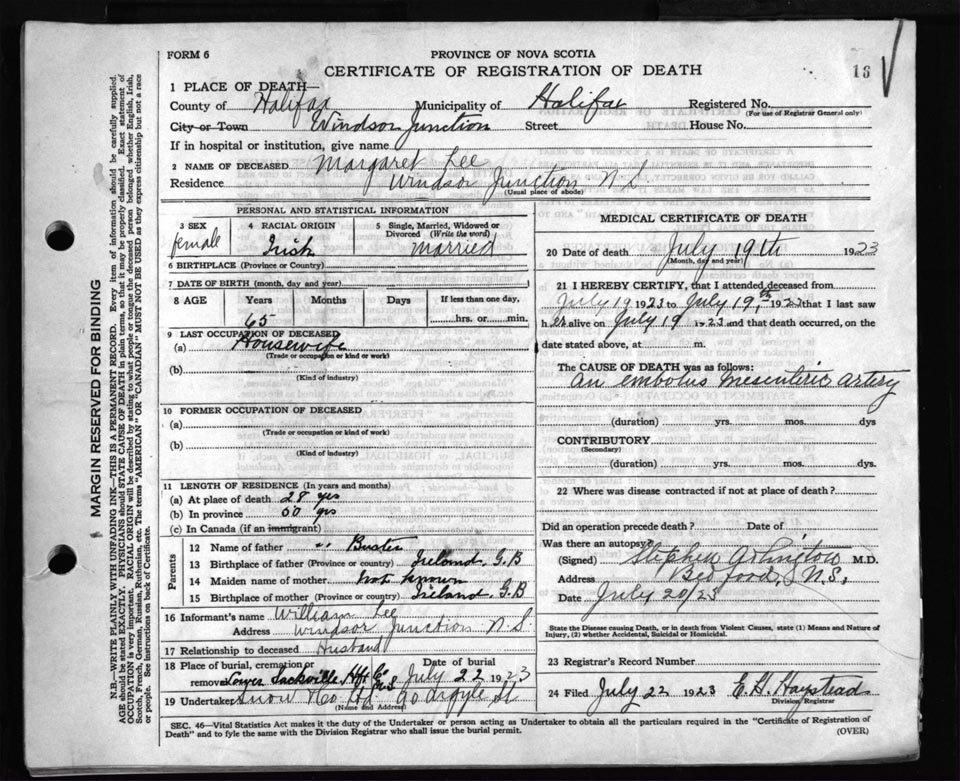 FORM 6
PROVINCE OF NOVA SCOTIA
CERTIFICATE OF REGISTRATION OF DEATH
16
1 PLACE OF DEATH—
County of Halifax Municipality of Halifax Registered No.
(For use of Registrar General only)
City or Town Windsor Junction Street House No.
If in hospital or institution, give name
2 NAME OF DECEASED Margaret Lee
Residence Windsor Junction N.S.
(Usual place of abode)
PERSONAL AND STATISTICAL INFORMATION
3 SEX female
4 RACIAL ORIGIN Irish
5 Single, Married, Widowed or Divorced (Write the word) Married
6 BIRTHPLACE (Province or Country)
7 DATE OF BIRTH (month, day and year)
8 AGE Years Months Days If less than one day,
65 hrs. or min.
9 LAST OCCUPATION OF DECEASED
(a) Housewife
(Trade or occupation or kind or work)
(b)
(Kind of industry)
10 FORMER OCCUPATION OF DECEASED
(a)
(Trade or occupation or kind of work)
(b)
(Kind of industry)
11 LENGTH OF RESIDENCE (In years and months)
(a) At place of death 28 yrs
(b) In province 50 yrs
(c) In Canada (if an immigrant)
Parents
12 Name of father " Buster
13 Birthplace of father (Province or country) Ireland. G.B
14 Maiden name of mother not known
15 Birthplace of mother (Province or country) Ireland. G.B
16 Informant's name William Lee
Address Windsor Junction N.S.
17 Relationship to deceased Husband
18 Place of burial, cremation or removal Lower Sackville Hfx Co N.S Date of burial July 22 1923
19 Undertaker Snow & Co Ltd. 90 Argyle St
(Name and Address)
MEDICAL CERTIFICATE OF DEATH
20 Date of death July 19th 1923
(Month, day and year)
21 I HEREBY CERTIFY, that I attended deceased from
July 19 1923 to July 19th, 1923 that I last saw
h er alive on July 19 1923 and that death occurred, on the
date stated above, at m.
The CAUSE OF DEATH was as follows:
An embolus mesenteric artery
(duration) yrs. mos. dys
CONTRIBUTORY
(Secondary)
(duration) yrs. mos. dys.
22 Where was disease contracted if not at place of death?
Did an operation precede death? Date of
Was there an autopsy?
(Signed) Stephen Arlington M.D.
Address Bedford, N.S.
Date July 20/23
State the Disease causing Death, or in death from Violent Causes, state (1) Means and Nature of
Injury, (2) whether Accidental, Suicidal or Homicidal.
23 Registrar's Record Number
24 Filed July 22 1923 E. H. Haystead
Division Registrar
SEC. 46—Vital Statistics Act makes it the duty of the Undertaker or person acting as Undertaker to obtain all the particulars required in the "Certificate of Registration of
Death" and to fyle the same with the Division Registrar who shall issue the burial permit.
(OVER)
MARGIN RESERVED FOR BINDING
N.B.—WRITE PLAINLY WITH UNFADING INK—THIS IS A PERMANENT RECORD. Every item of information should be carefully supplied.
AGE should be stated EXACTLY. PHYSICIANS should STATE CAUSE OF DEATH in plain terms, so that it may be properly classified. Exact statement of
OCCUPATION is very important. RACIAL ORIGIN will be described by stating to what people or tongue the deceased person belonged whether English, Irish,
Scotch, French, German, Russian, Ruthenian, etc. The terms "AMERICAN" OR "CANADIAN" MUST NOT BE USED as they express citizenship but not a race
or people. See instructions on back of Certificate.